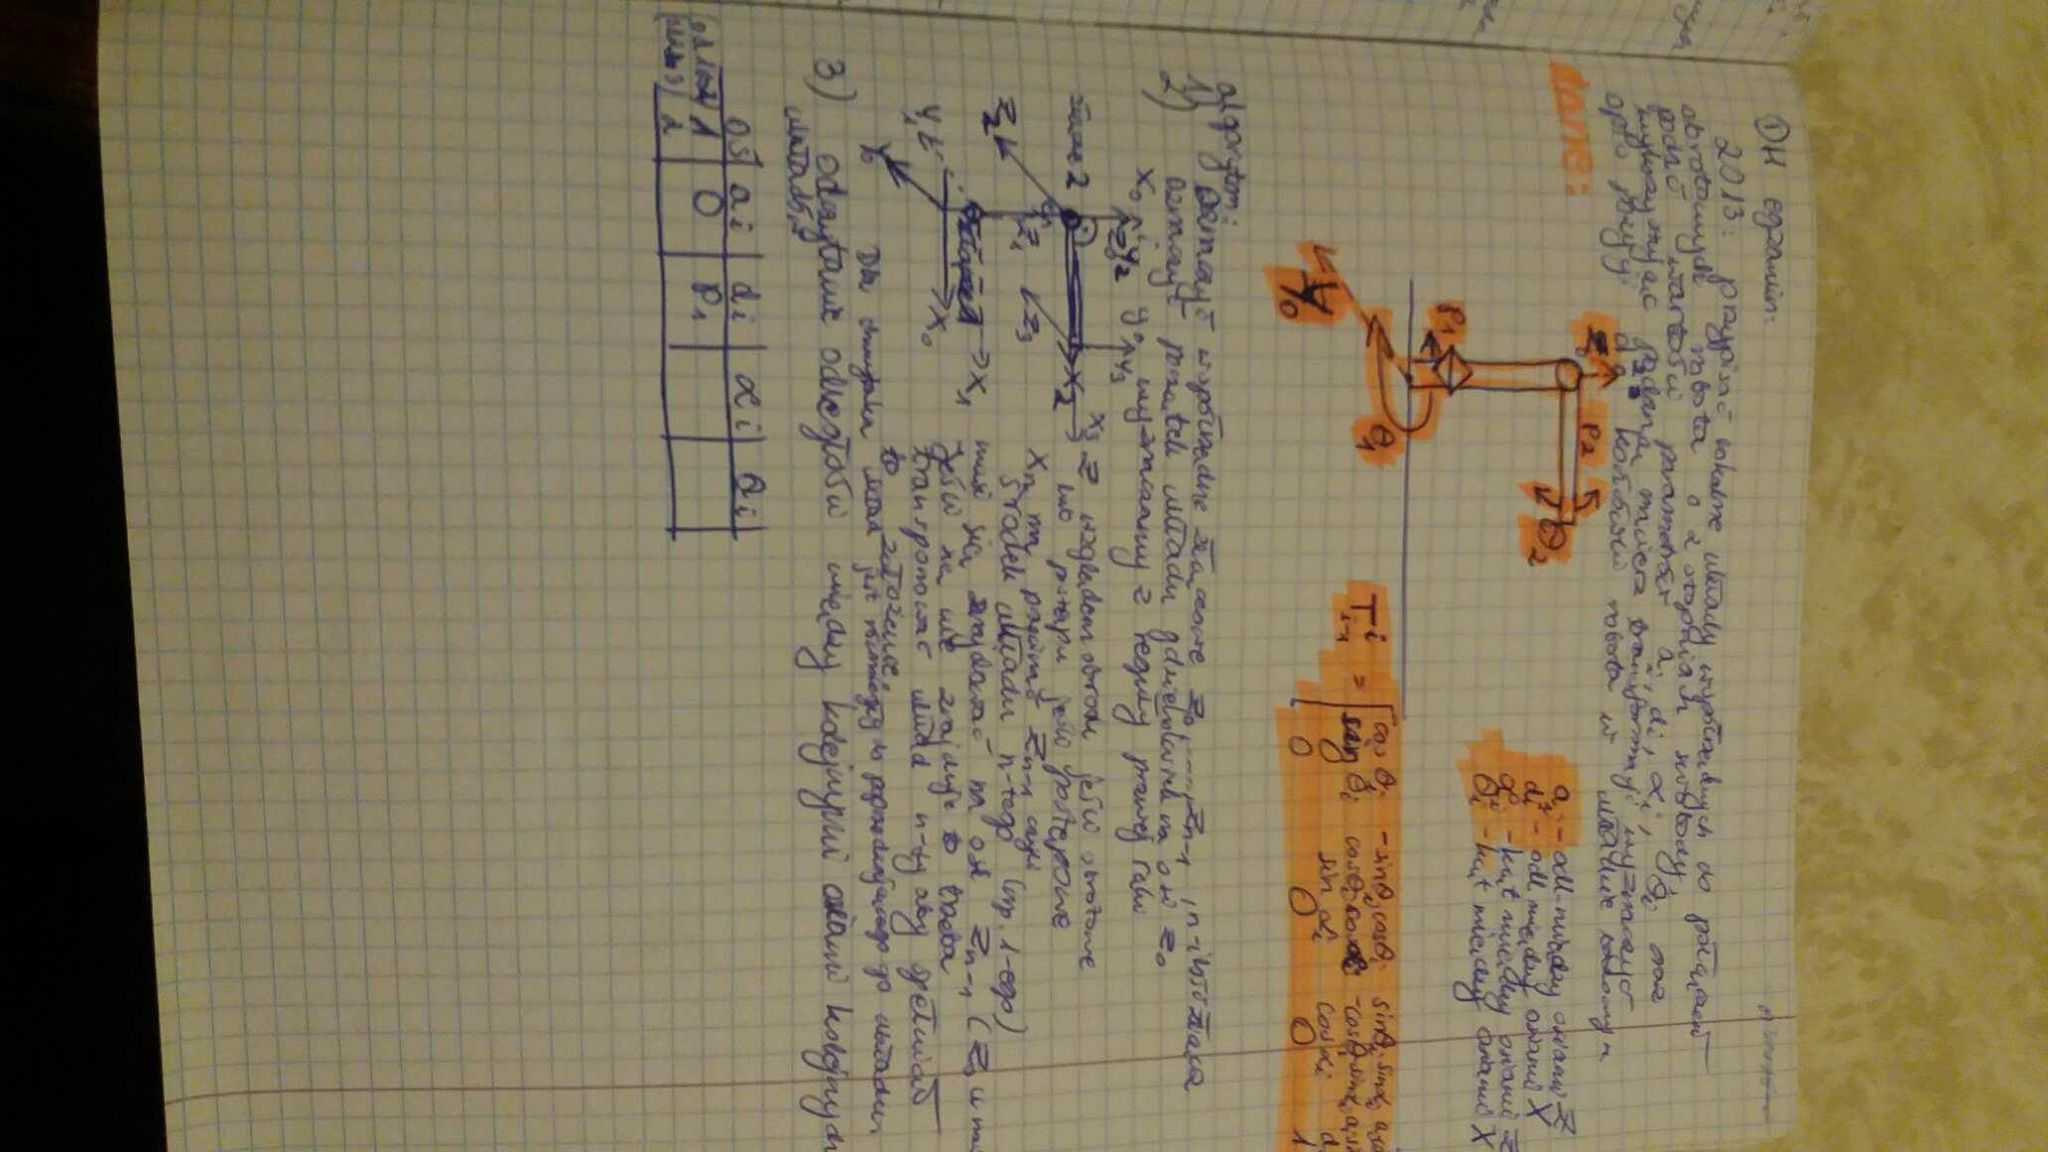 DH egzamin:
2013: przypisać lokalne układy współrzędnych do połączeń
obrotowych robota o 2 stopniach swobody,
podać wartości parametrów ai, di, αi, θi oraz
wykorzystując podaną macierz transformacji wyznaczyć
opis pozycji końcówki robota w układzie
dane:
Z0 P2 θ2
P1
θ1
Y0
ai - odl między osiami Z
di - odl między osiami X
αi - kąt między osiami Z
θi - kąt między osiami X
T i i-1 =
cos θi -sinθi cosθi sinθi sinαi
sin θi cosθi cosαi -cosθi sinαi
0 sin αi cosαi
0 0 0 1
algorytm:
1) Oznaczyć współrzędne złączowe Z0, ..., Zn-1, n-ilość złącz
2) oznaczyć początek układu gdziekolwiek na osi Z0
X0 i y0 wyznaczamy z reguły prawej ręki
Z0 Y2 Y3
złącze 2 X2 X3
Z względem obrotu jeśli obrotowe
lub postępu jeśli postępowe
Z1 Z3
Z2
Xn ma przecinać Zn-1 czyli
środek układu n-tego (np. 1-ego)
X1 musi się znajdować na osi Zn-1
Y1 X0 jeśli się nie znajduje to trzeba
transponować układ n-ty aby spełniał
Y0 to założenie.
Dla chwytaka układ jest równoległy do poprzedzającego go układu.
3) odczytanie odległości między kolejnymi osiami kolejnych
układów
oś ai di αi θi
1 0 P1
2